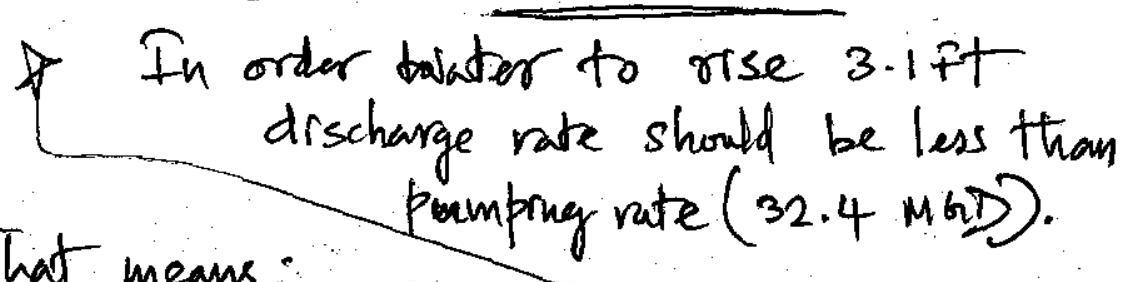 In order water to rise 3.1 ft
discharge rate should be less than
pumping rate (32.4 MGD).
That means: